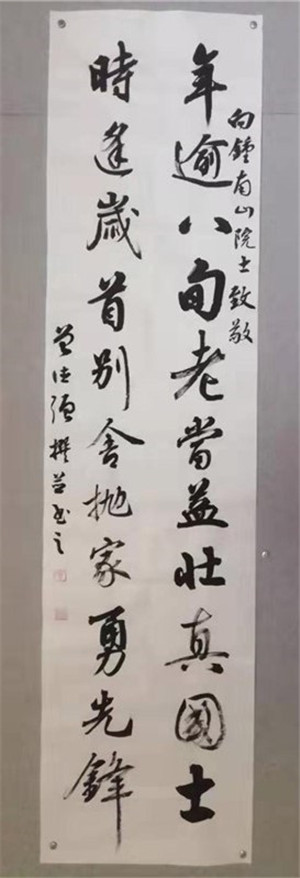 向鍾南山院士致敬
年逾八旬老當益壯真國士
時逢歲首別舍抛家勇先鋒
曾德強撰并书之